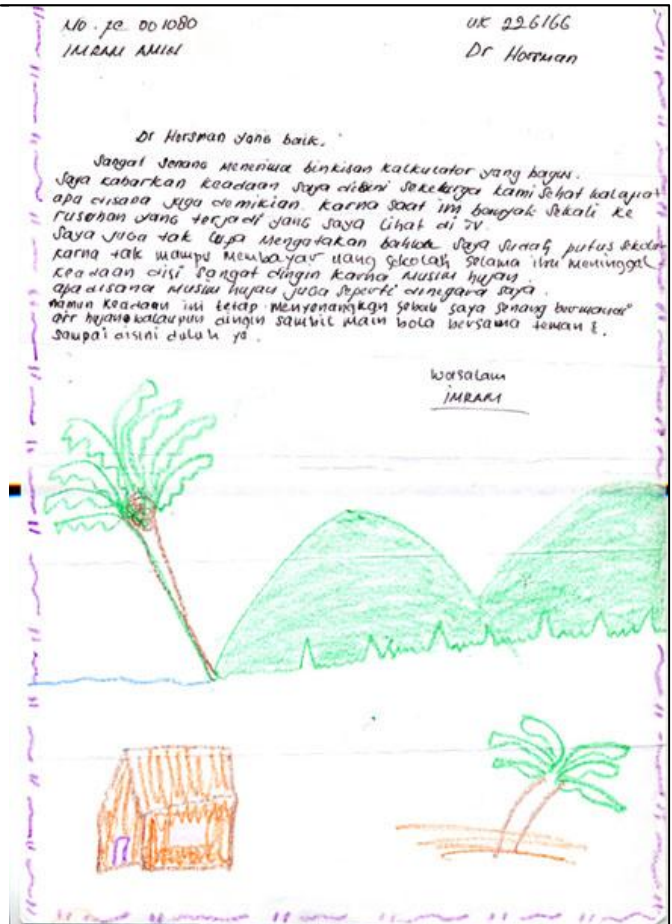 No. JC 001080
UK 226166
IMRAN AMIN
Dr Horsman
Dr Horsman yang baik.
Sangat senang menerima binkisan kalkulator yang bagus.
Saya kabarkan keadaan saya disini sekeluarga kami sehat walapiat
apa disana juga demikian. karna saat ini banyak sekali ke
rusohan yang terjadi yang saya lihat di TV.
Saya juga tak lupa mengatakan bahwa saya sudah putus sekolah
karna tak mampu membayar uang sekolah selama ibu meninggal
keadaan disi sangat dingin karna musim hujan.
apa disana musim hujan juga seperti dinegara saya.
namun keadaan ini tetap menyenangkan sebab saya senang bermandi²
air hujan walaupun dingin sambil main bola bersama teman
sampai disini dulu ya.
wasalam
IMRAN